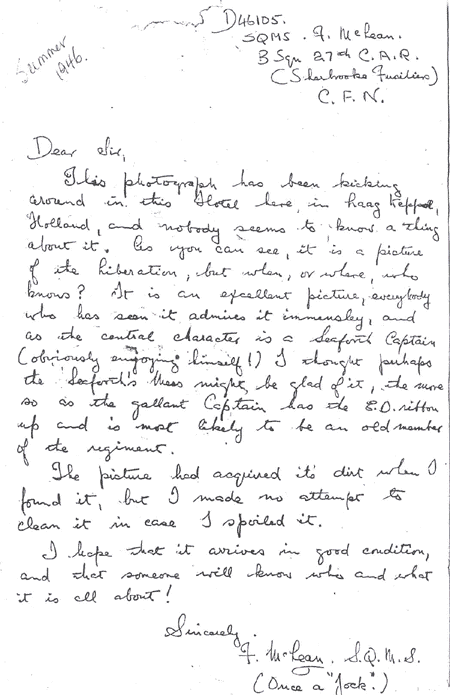 D46105.
SQMS. F. McLean.
B Sqn 27th C.A.R.
(Sherbrooke Fusiliers)
C.F.N.
Summer
1946.
Dear Sir,
This photograph has been kicking
around in this Hotel here, in Haag Keppel,
Holland, and nobody seems to know a thing
about it. As you can see, it is a picture
of the liberation, but when, or where, who
knows? It is an excellent picture, everybody
who has seen it admires it immensley, and
as the central character is a Seaforth Captain
(obviously enjoying himself!) I thought perhaps
the Seaforth's Mess might be glad of it, the more
so as the gallant Captain has the E.D. ribbon
up and is most likely to be an old member
of the regiment.
The picture had acquired it's dirt when I
found it, but I made no attempt to
clean it in case I spoiled it.
I hope that it arrives in good condition,
and that someone will know who and what
it is all about!
Sincerely.
F. McLean. S.Q.M.S.
(Once a "Jock".)